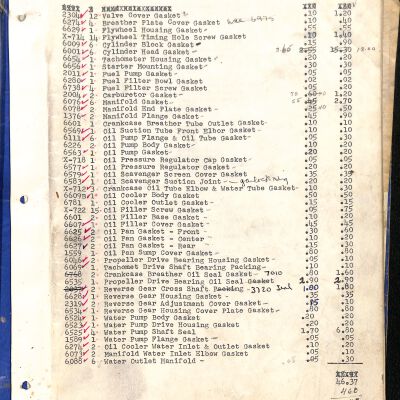 2304 12 Valve Cover Gasket .10 1.20
6274 4 Breather Plate Cover Gasket .10 .40
6629 1 Flywheel Housing Gasket .55 .55
X-714 14 Flywheel Timing Hole Screw Gasket .10
6009 6 Cylinder Block Gasket .90
6001 6 Cylinder Head Gasket 2.55 15.30
6654 1 Tachometer Housing Gasket .20 .20
6656 1 Starter Mounting Gasket .30 .30
2011 1 Fuel Pump Gasket .05 .05
6280 1 Fuel Filter Bowl Gasket .02 .02
6738 4 Fuel Filter Screw Gasket .05 .20
2004 2 Carburetor Gasket
6076 6 Manifold Gasket .45 2.70
6078 2 Manifold End Plate Gasket .50
1376 2 Manifold Flange Gasket .45 .90
6601 1 Crankcase Breather Tube Outlet Gasket .10 .10
6569 1 Oil Suction Tube Front Elbow Gasket .10 .10
6111 6 Oil Pump Flange & Oil Tube Gasket .05 .30
6226 2 Oil Pump Body Gasket .10 .20
6563 1 Oil Pump Gasket .20 .20
X-718 1 Oil Pressure Regulator Cap Gasket .05 .05
6577 1 Oil Pressure Regulator Gasket .20 .20
6579 1 Oil Scavenger Screen Cover Gasket .35 .35
6583 1 Oil Scavenger Suction Joint .20 .20
X-712 3 Crankcase Oil Tube Elbow & Water Tube Gasket .10 .30
6609 1 Oil Cooler Body Gasket .50 .50
6781 1 Oil Cooler Outlet Gasket .15 .15
X-722 15 Oil Filler Screw Gasket .05 .75
6601 1 Oil Filler Base Gasket .10 .10
6607 1 Oil Filler Cover Gasket .45 .45
6625 2 Oil Pan Gasket - Front .30 .60
6626 2 Oil Pan Gasket - Center .10 .20
6627 2 Oil Pan Gasket - Rear .15 .30
1559 1 Oil Pan Sump Cover Gasket .80 .80
6046 1 Propeller Drive Bearing Housing Gasket .05 .10
6069 1 Tachomet Drive Shaft Bearing Packing .10 .10
6768 2 Crankcase Breather Oil Seal Gasket 7010 .80 1.60
6535 1 Propeller Drive Bearing Oil Seal Gasket 2.90 2.90
2 Reverse Gear Cross Shaft Packing 1.80
6628 1 Reverse Gear Housing Gasket .35 .35
2319 2 Reverse Gear Adjustment Cover Gasket .10
6534 1 Reverse Gear Housing Cover Plate Gasket .80 .80
6524 1 Water Pump Body Gasket .20 .20
6523 2 Water Pump Drive Housing Gasket .10 .20
6525 4 Water Pump Shaft Seal 1.70 6.80
1589 1 Water Pump Flange Gasket .05 .05
6274 2 Oil Cooler Water Inlet & Outlet Gasket .10 .20
6073 2 Manifold Water Inlet Elbow Gasket .05 .10
6088 6 Water Outlet Manifold .05 .30
46.37